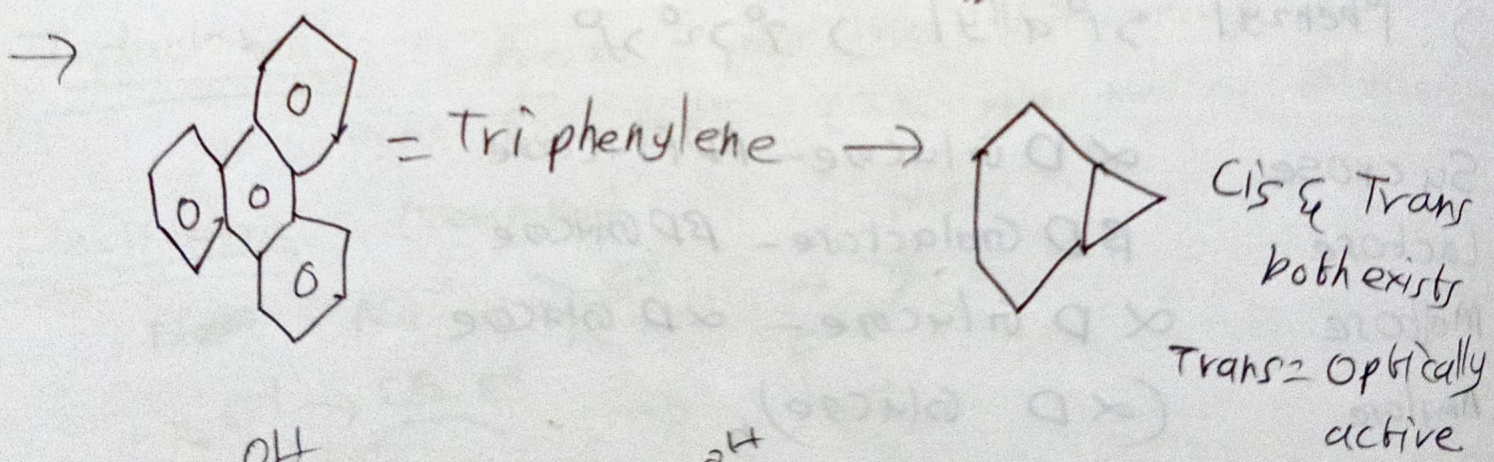 → = Triphenylene → Cis & Trans
both exists
Trans = Optically
active
OH OH